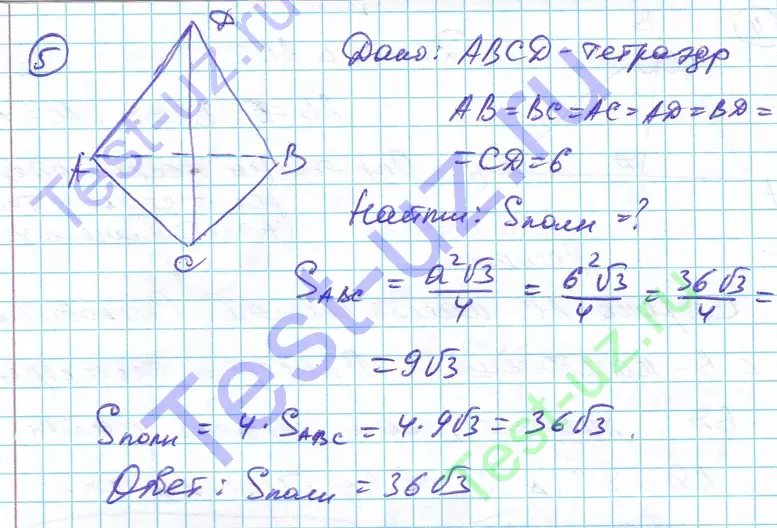 5
D
A
B
C
Дано: ABCD - тетраэдр
AB = BC = AC = AD = BD =
= CD = 6
Найти: Sполн = ?
S_ABC = a²√3/4 = 6²√3/4 = 36√3/4 =
= 9√3
Sполн = 4 · S_ABC = 4 · 9√3 = 36√3.
Ответ: Sполн = 36√3
Test-uz.ru
Test-uz.ru
Test-uz.ru